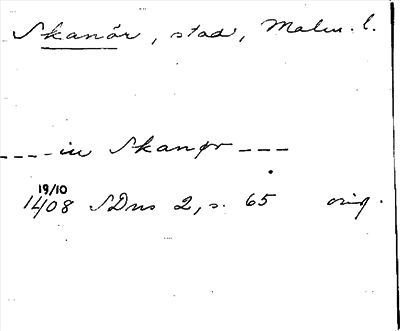 Skanör, stad, Malm. l.
---- in Skanør ---
19/10
1408 SDns 2, s. 65 orig.